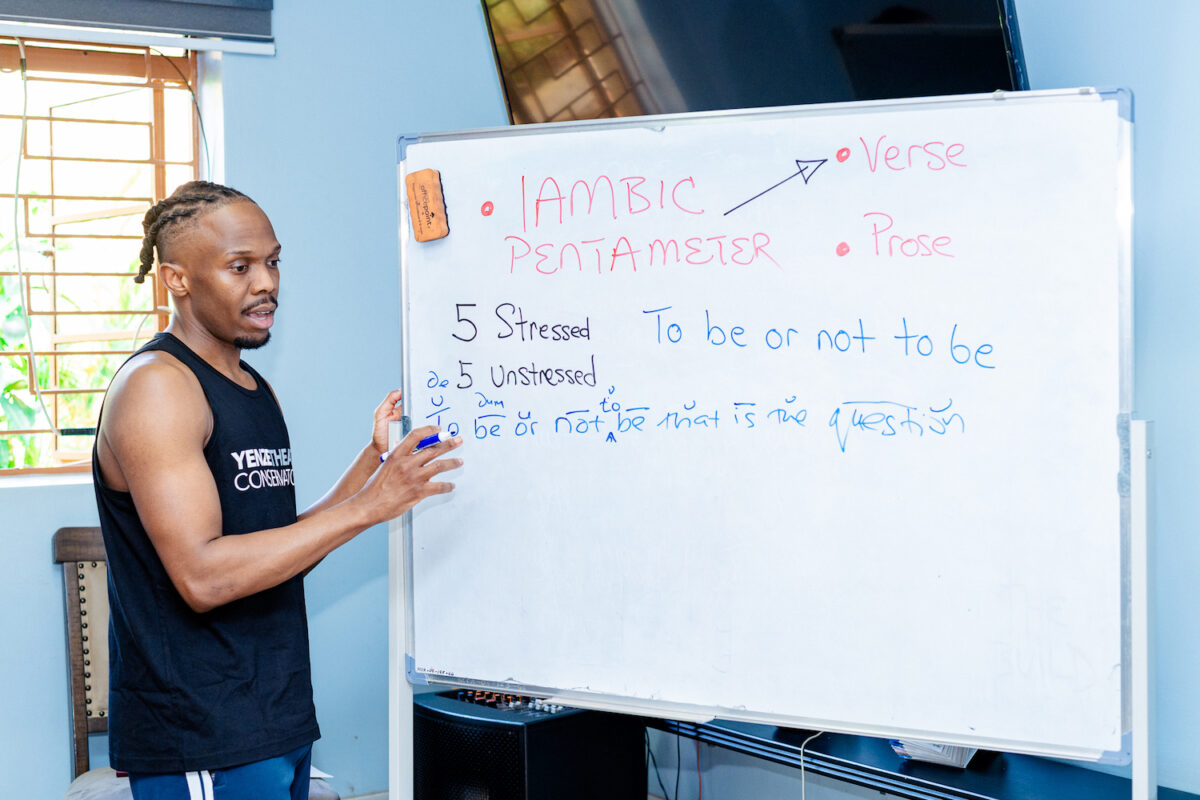 • IAMBIC
PENTAMETER
• Verse
• Prose
5 Stressed
5 Unstressed
To be or not to be
de
dum
to
To be or not be that is the question
YENZETHEA
CONSERVATO
officepoint